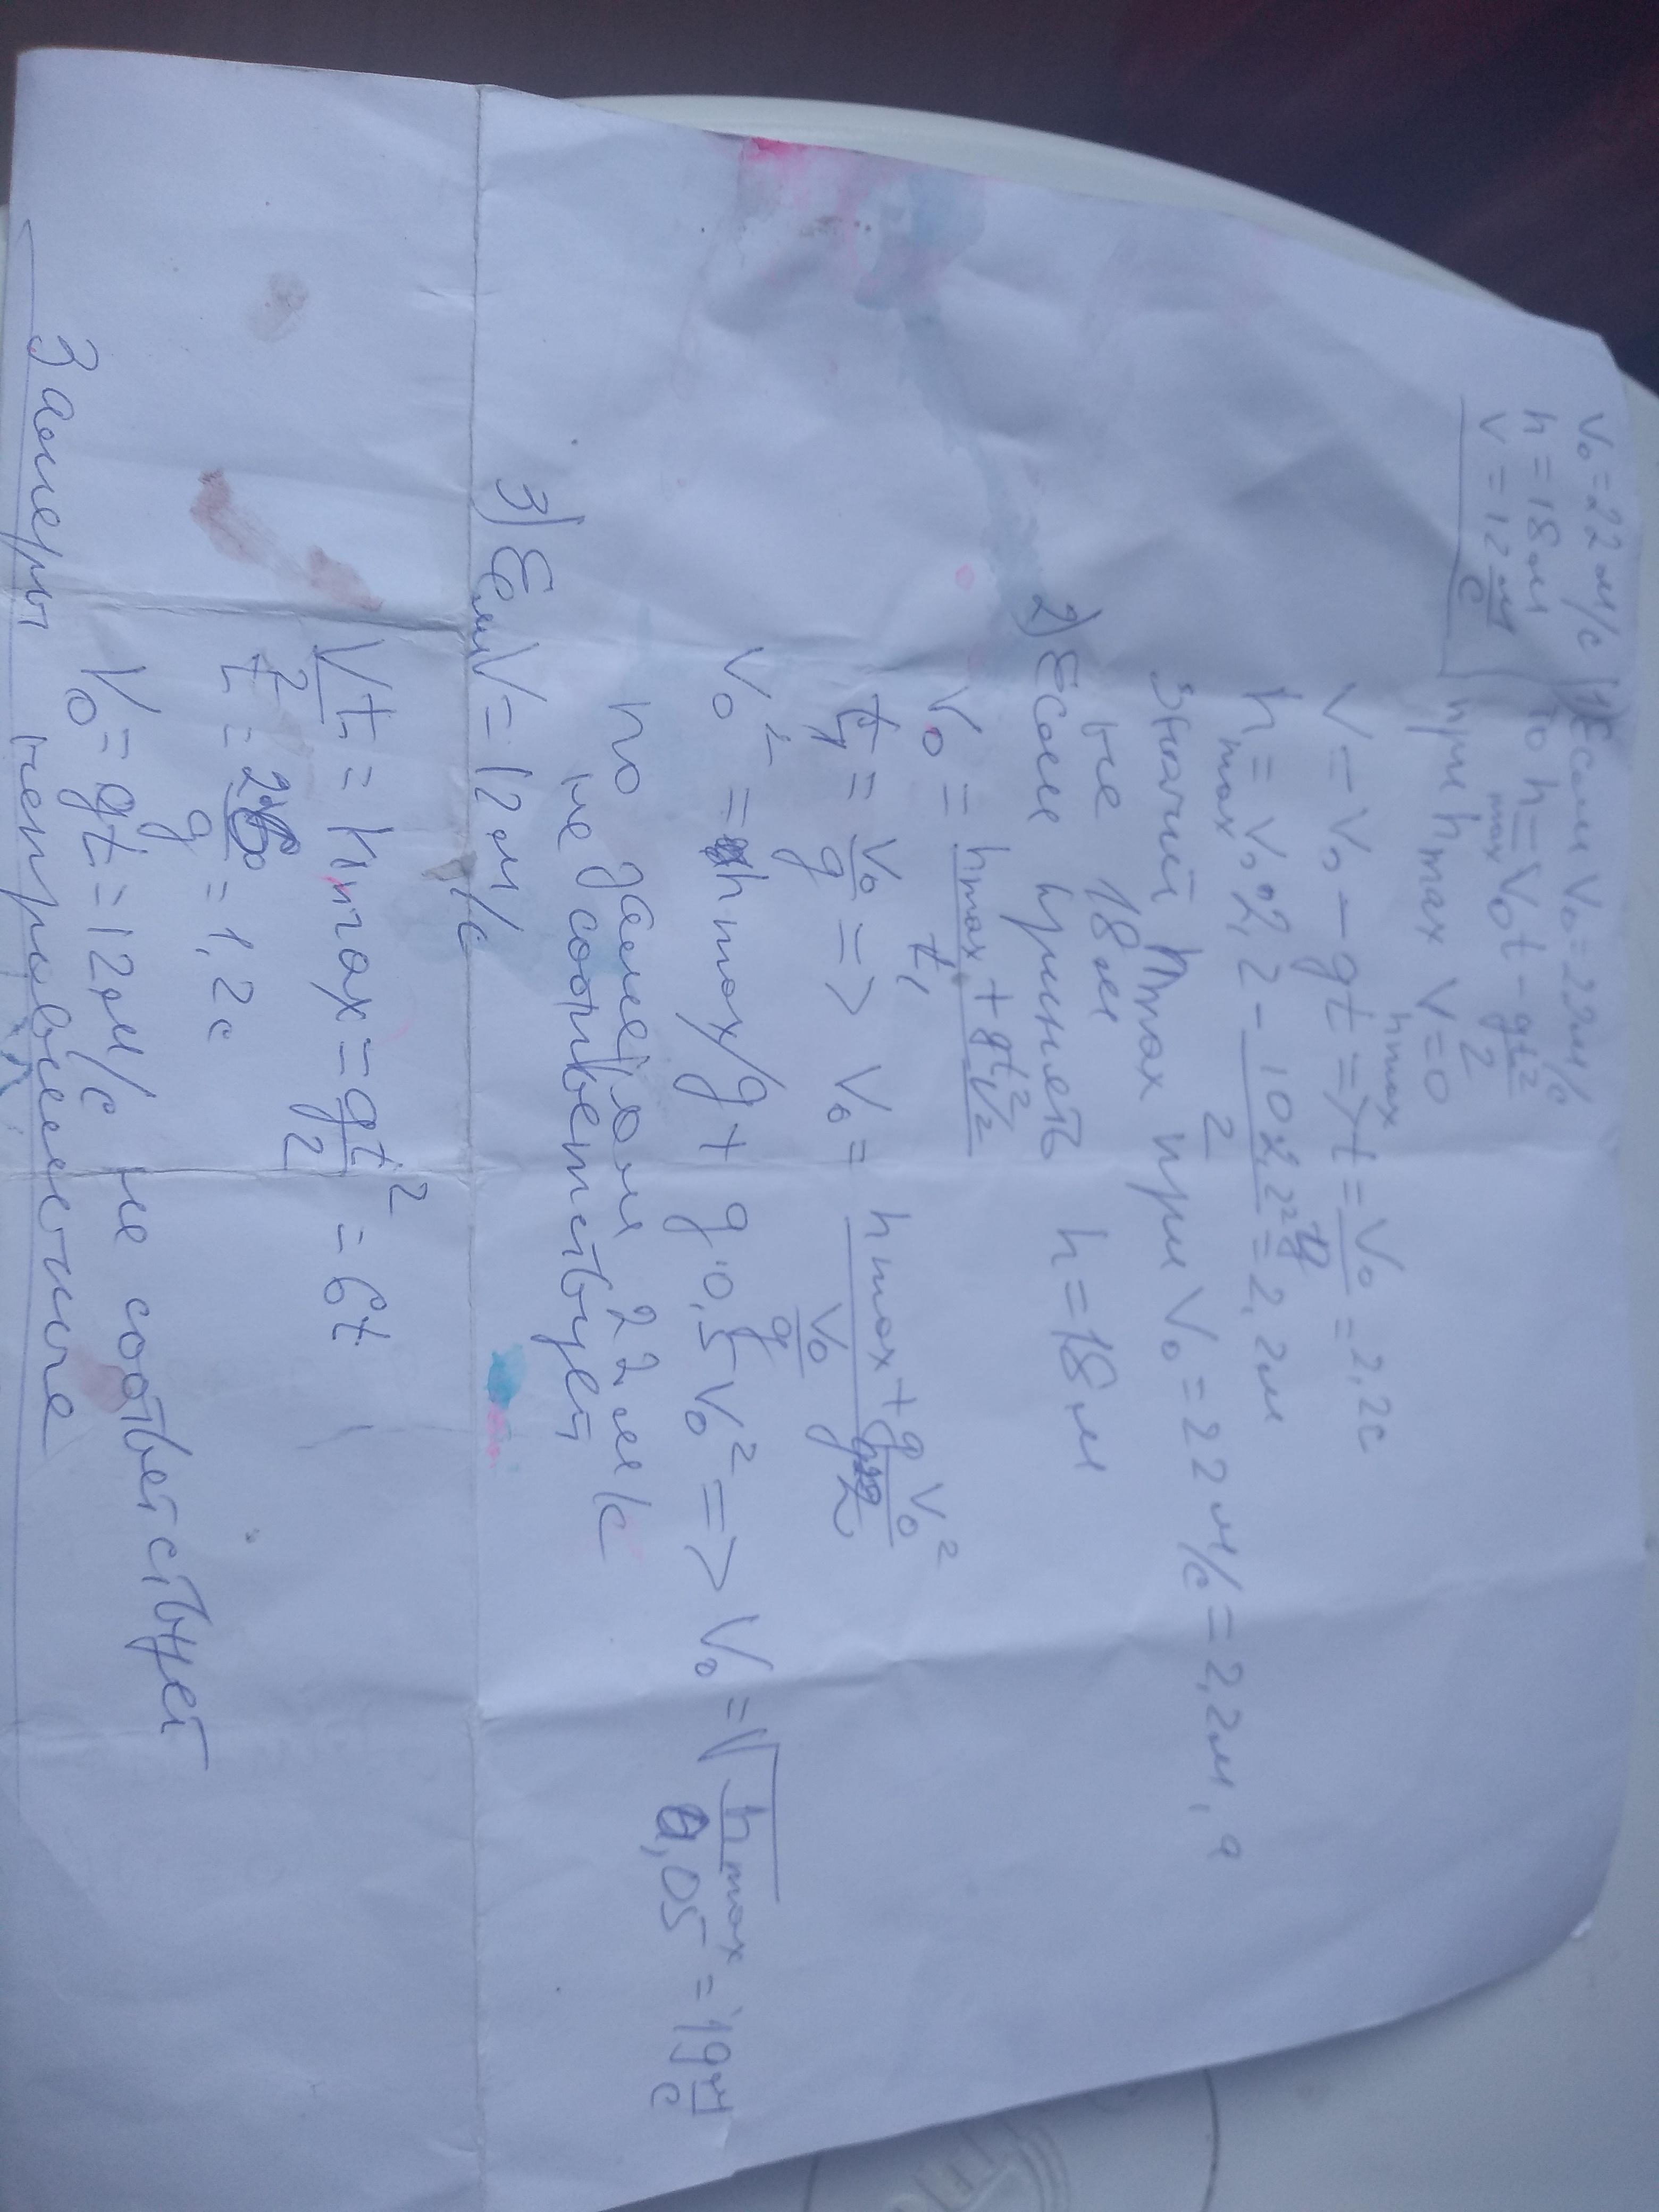 V₀ = 22 м/с
h = 18 м
V = 12 м/с
1) Если V₀ = 22 м/с
то h max = V₀t - gt²/2
при h max V = 0
V = V₀ - gt => t h max = V₀/g = 2,2 с
h max = V₀ · 2,2 - 10 · 2,2²/2 = 2,2 м
Значит h max при V₀ = 22 м/с = 2,2 м, а
не 18 м
2) Если принять h = 18 м
V₀ = (h max + gt²/2)/t₁
t₁ = V₀/g => V₀ = (h max + g V₀²/2)/(V₀/g)
V₀² = h max/g + g · 0,5 V₀² => V₀ = √(h max/0,05) = 19 м/с
но замером 22 м/с
не соответствует
3) Если V = 12 м/с
Vt/2 = h max = gt²/2 = 6t
t = /g = 1,2 с
V₀ = gt = 12 м/с не соответствует
Замеры неправильные